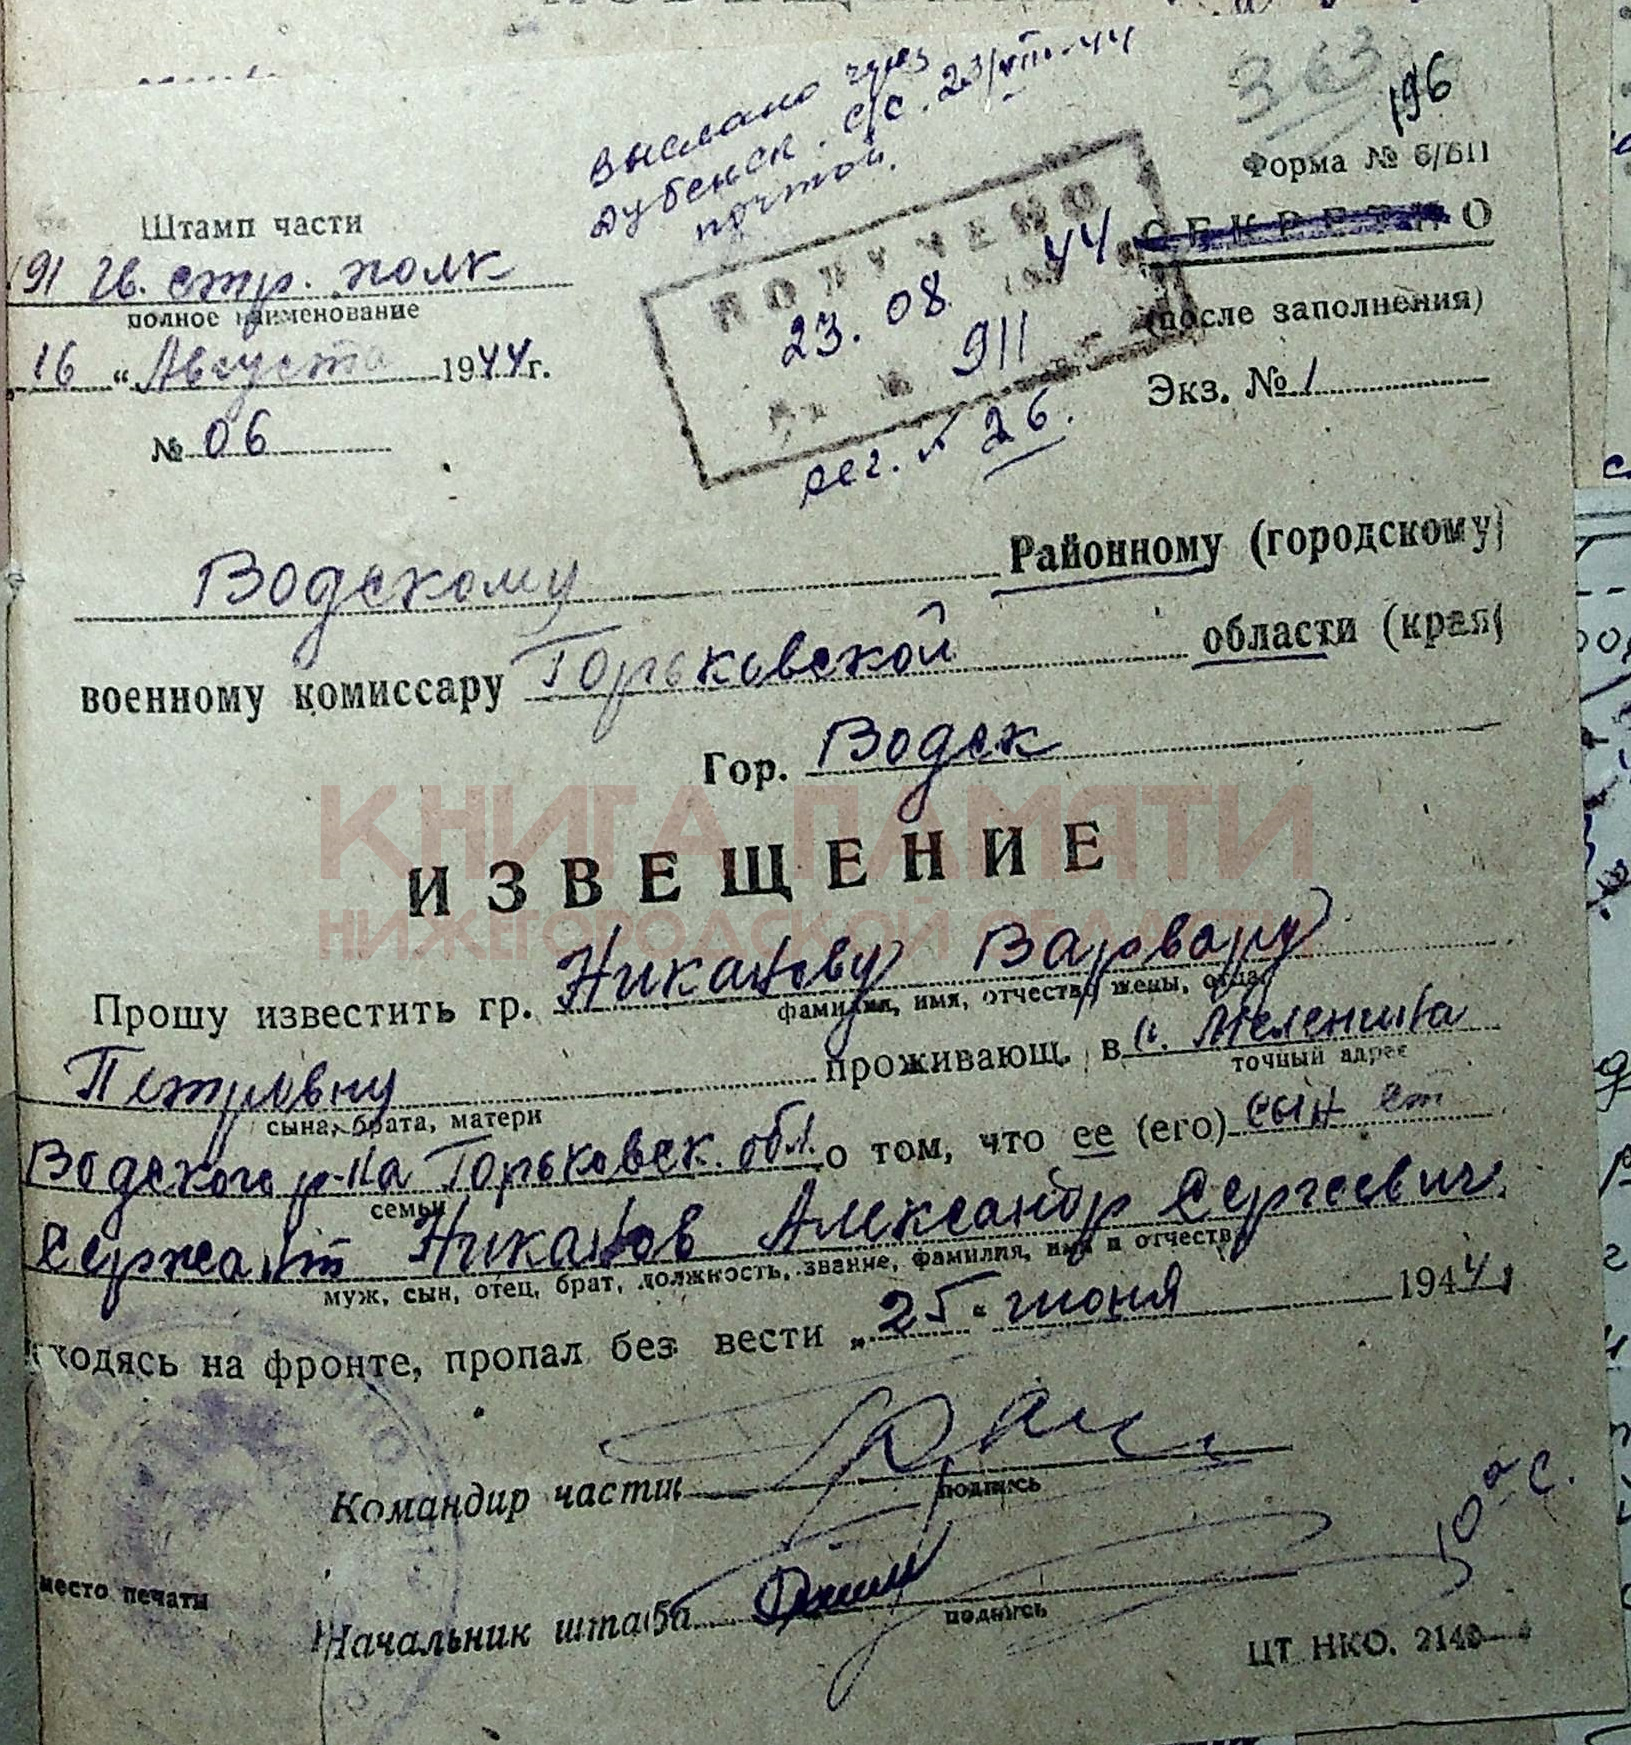 выслано через
Дубенск. с/с. 23/VIII-44
почтой.
363
196
Форма № 6/БП
Штамп части
191 гв. стр. полк
полное наименование
СЕКРЕТНО
(после заполнения)
ПОЛУЧЕНО
23. 08 1944
Вх № 911
рег. № 26.
„16 “ Августа 1944 г.
Экз. № 1
№ 06
Водскому Районному (городскому)
военному комиссару Горьковской области (края)
Гор. Водск
КНИГА ПАМЯТИ
ИЗВЕЩЕНИЕ
НИЖЕГОРОДСКОЙ ОБЛАСТИ
Прошу известить гр. Никанову Варвару
фамилия, имя, отчество жены, отца,
Петровну проживающ. в с. Меленина
точный адрес
сына, брата, матери
Водского р-на Горьковск. обл. о том, что ее (его) сын ст
семьи
Сержант Никанов Александр Сергеевич
муж, сын, отец, брат, должность, звание, фамилия, имя и отчество
ходясь на фронте, пропал без вести „25“ июня 1944
Командир части
подпись
место печати
Начальник штаба
подпись
ЦТ НКО. 2140